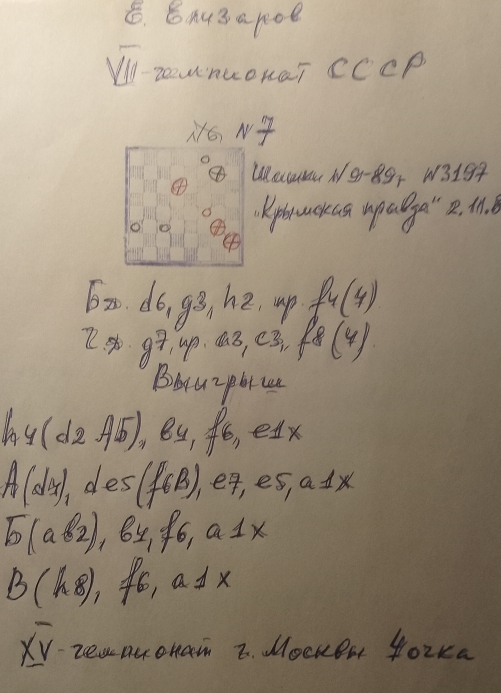 Е. Елизаров
VII - чемпионат СССР
№ 7
Шашки N9-89г. N3197
"Крымская правда" 2.11.8
Бд. d6, g3, h2, пр. f4 (4)
Ч.д. g7, пр. a3, c3, f8 (4).
Выигрыш
h4 (d2 АБ), b4, f6, e1x
А (d4), de5 (f6В), e7, e5, a1x
Б (ab2), b4, f6, a1x
В (h8), f6, a1x
XV - чемпионат г. Москвы 4очка